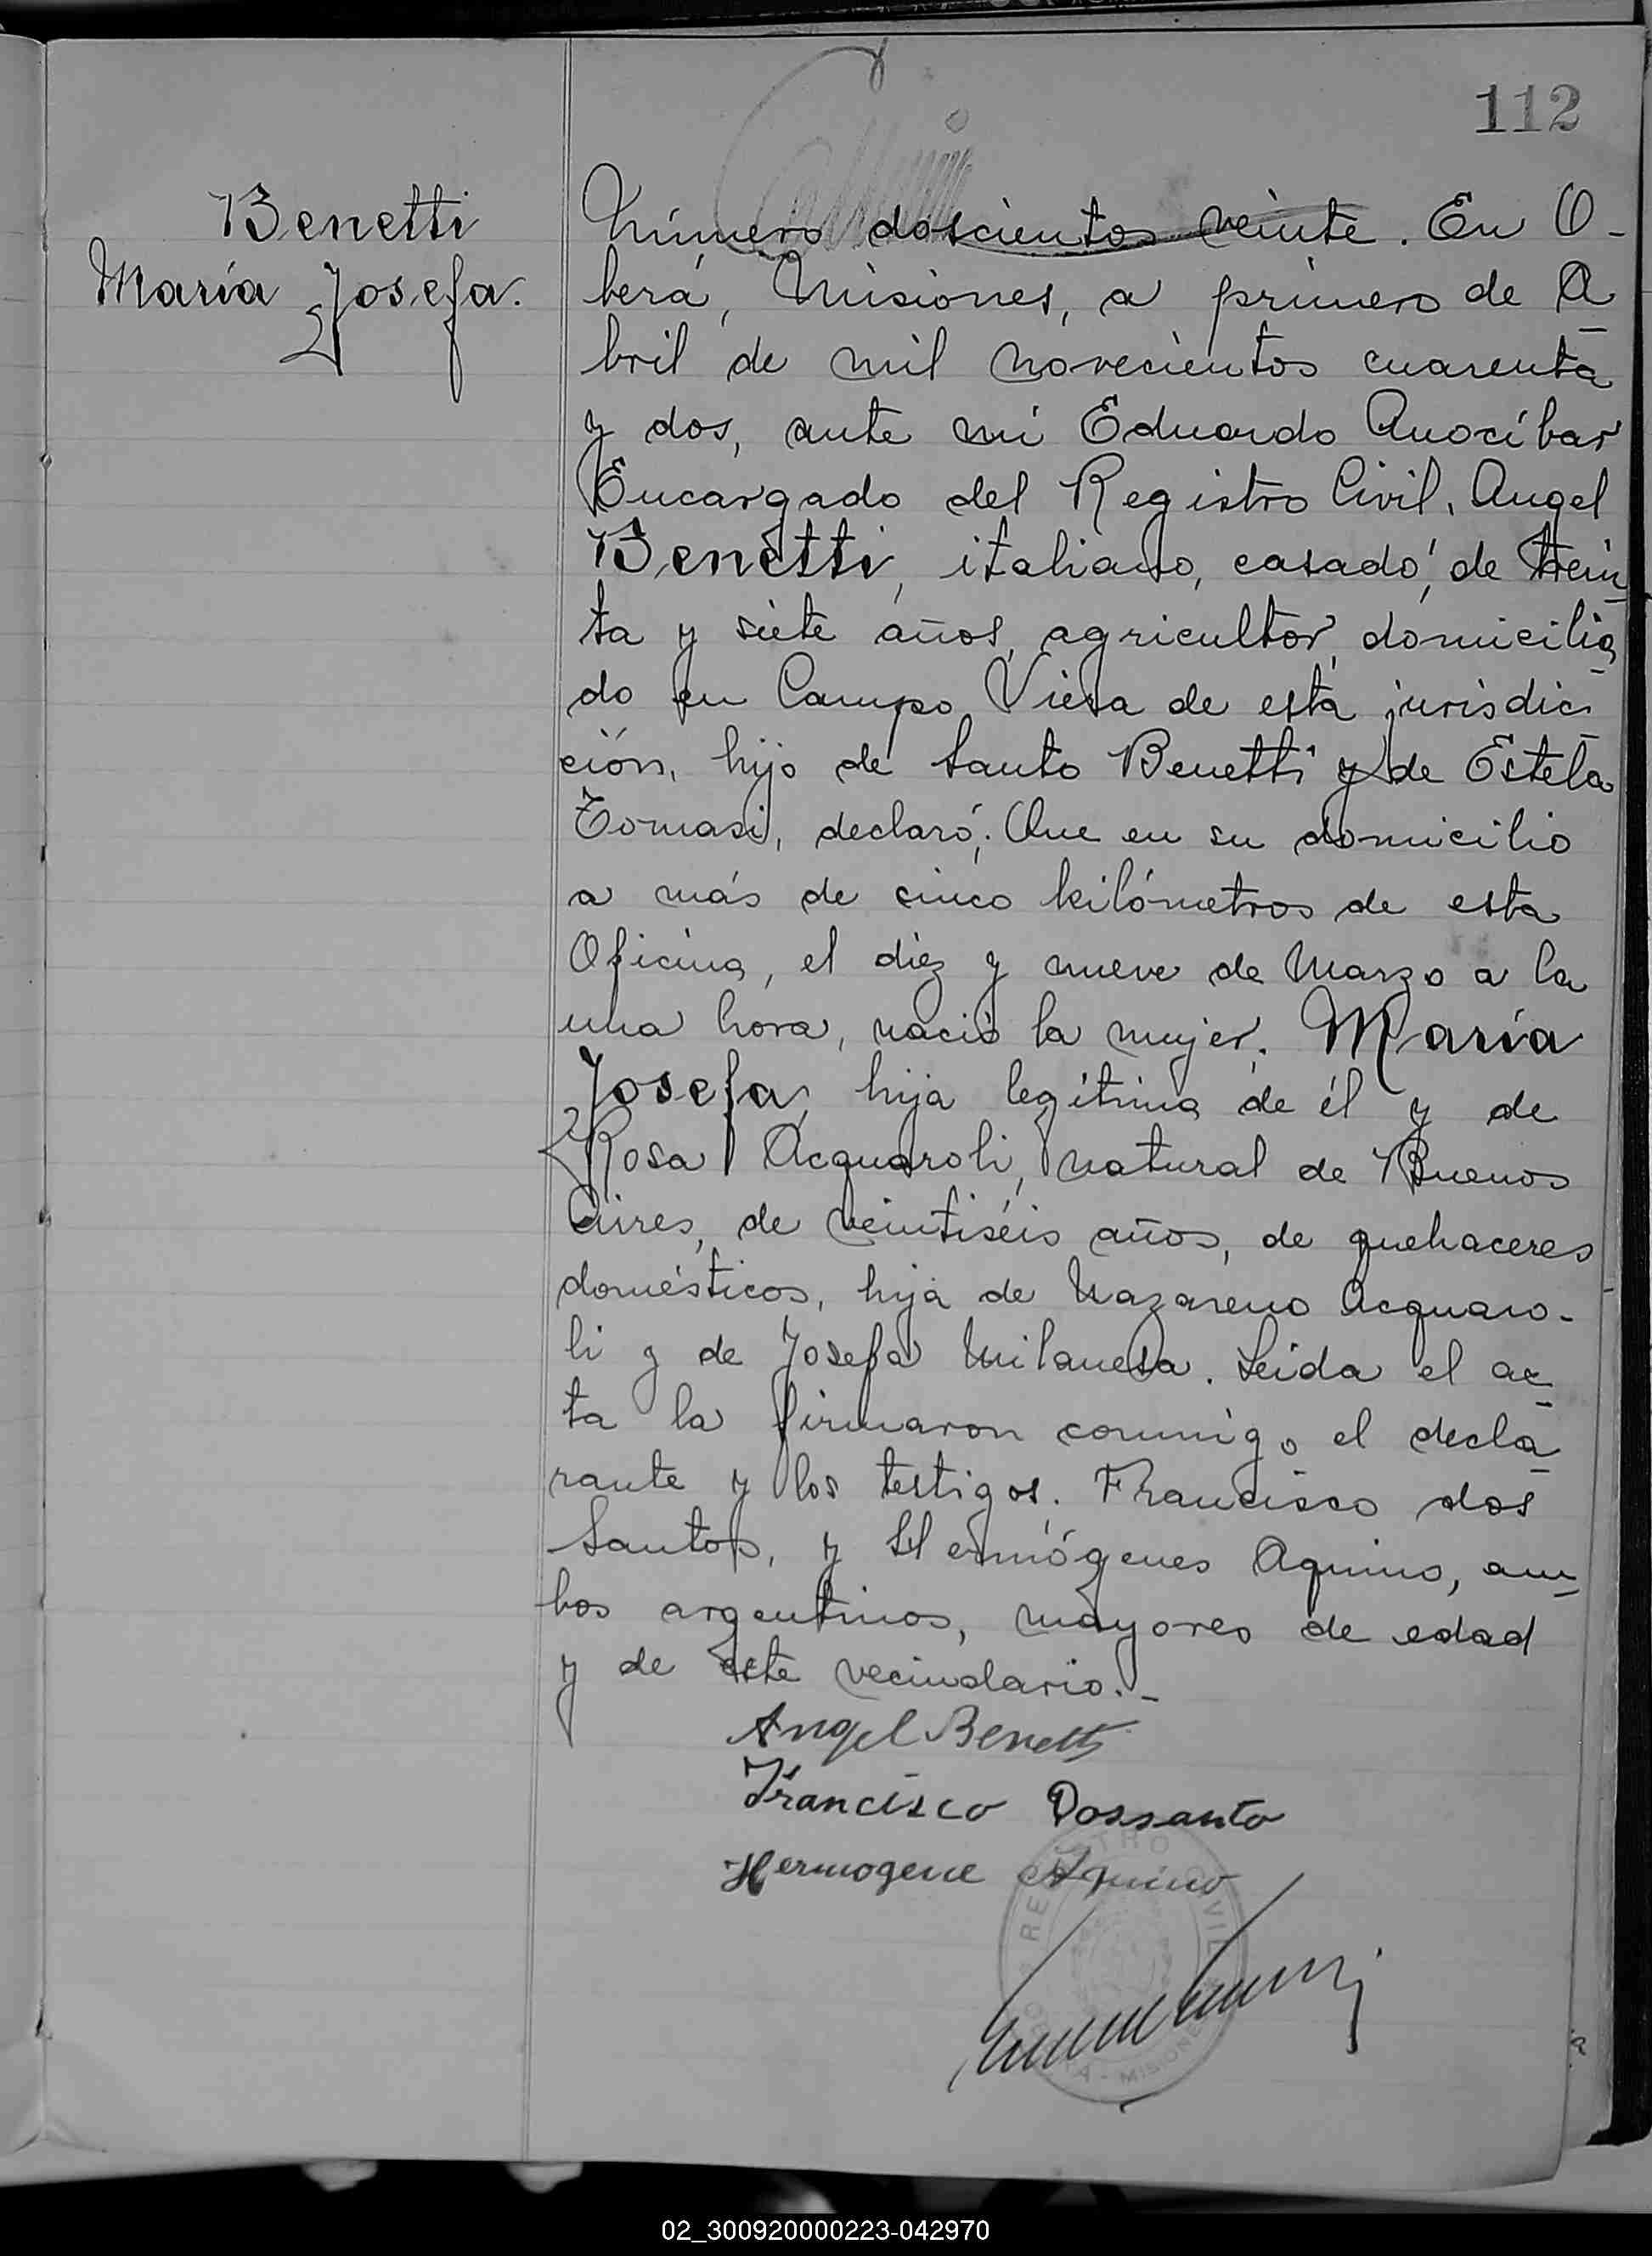 112
Benetti
María Josefa.
Número doscientos veinte. En O-
berá, Misiones, a primero de A-
bril de mil novecientos cuarenta
y dos, ante mí Eduardo Anocíbar
Encargado del Registro Civil, Angel
Benetti, italiano, casado, de trein-
ta y siete años, agricultor, domicilia-
do en Campo Viera de esta jurisdic-
ción, hijo de Santo Benetti y de Estela
Tomasi, declaró: Que en su domicilio
a más de cinco kilómetros de esta
Oficina, el diez y nueve de Marzo a la
una hora, nació la mujer. María
Josefa, hija legítima de él y de
Rosa Acquaroli, natural de Buenos
Aires, de veintiséis años, de quehaceres
domésticos, hija de Nazareno Acquaro-
li y de Josefa Milanesa. Leida el ac-
ta la firmaron conmigo el decla-
rante y los testigos. Francisco dos
Santos, y Hermógenes Aquino, am-
bos argentinos, mayores de edad
y de este vecindario.-
Angel Benetti
Francisco Dossanto
Hermogene Aquino
REGISTRO CIVIL
MISIONES
02_300920000223-042970